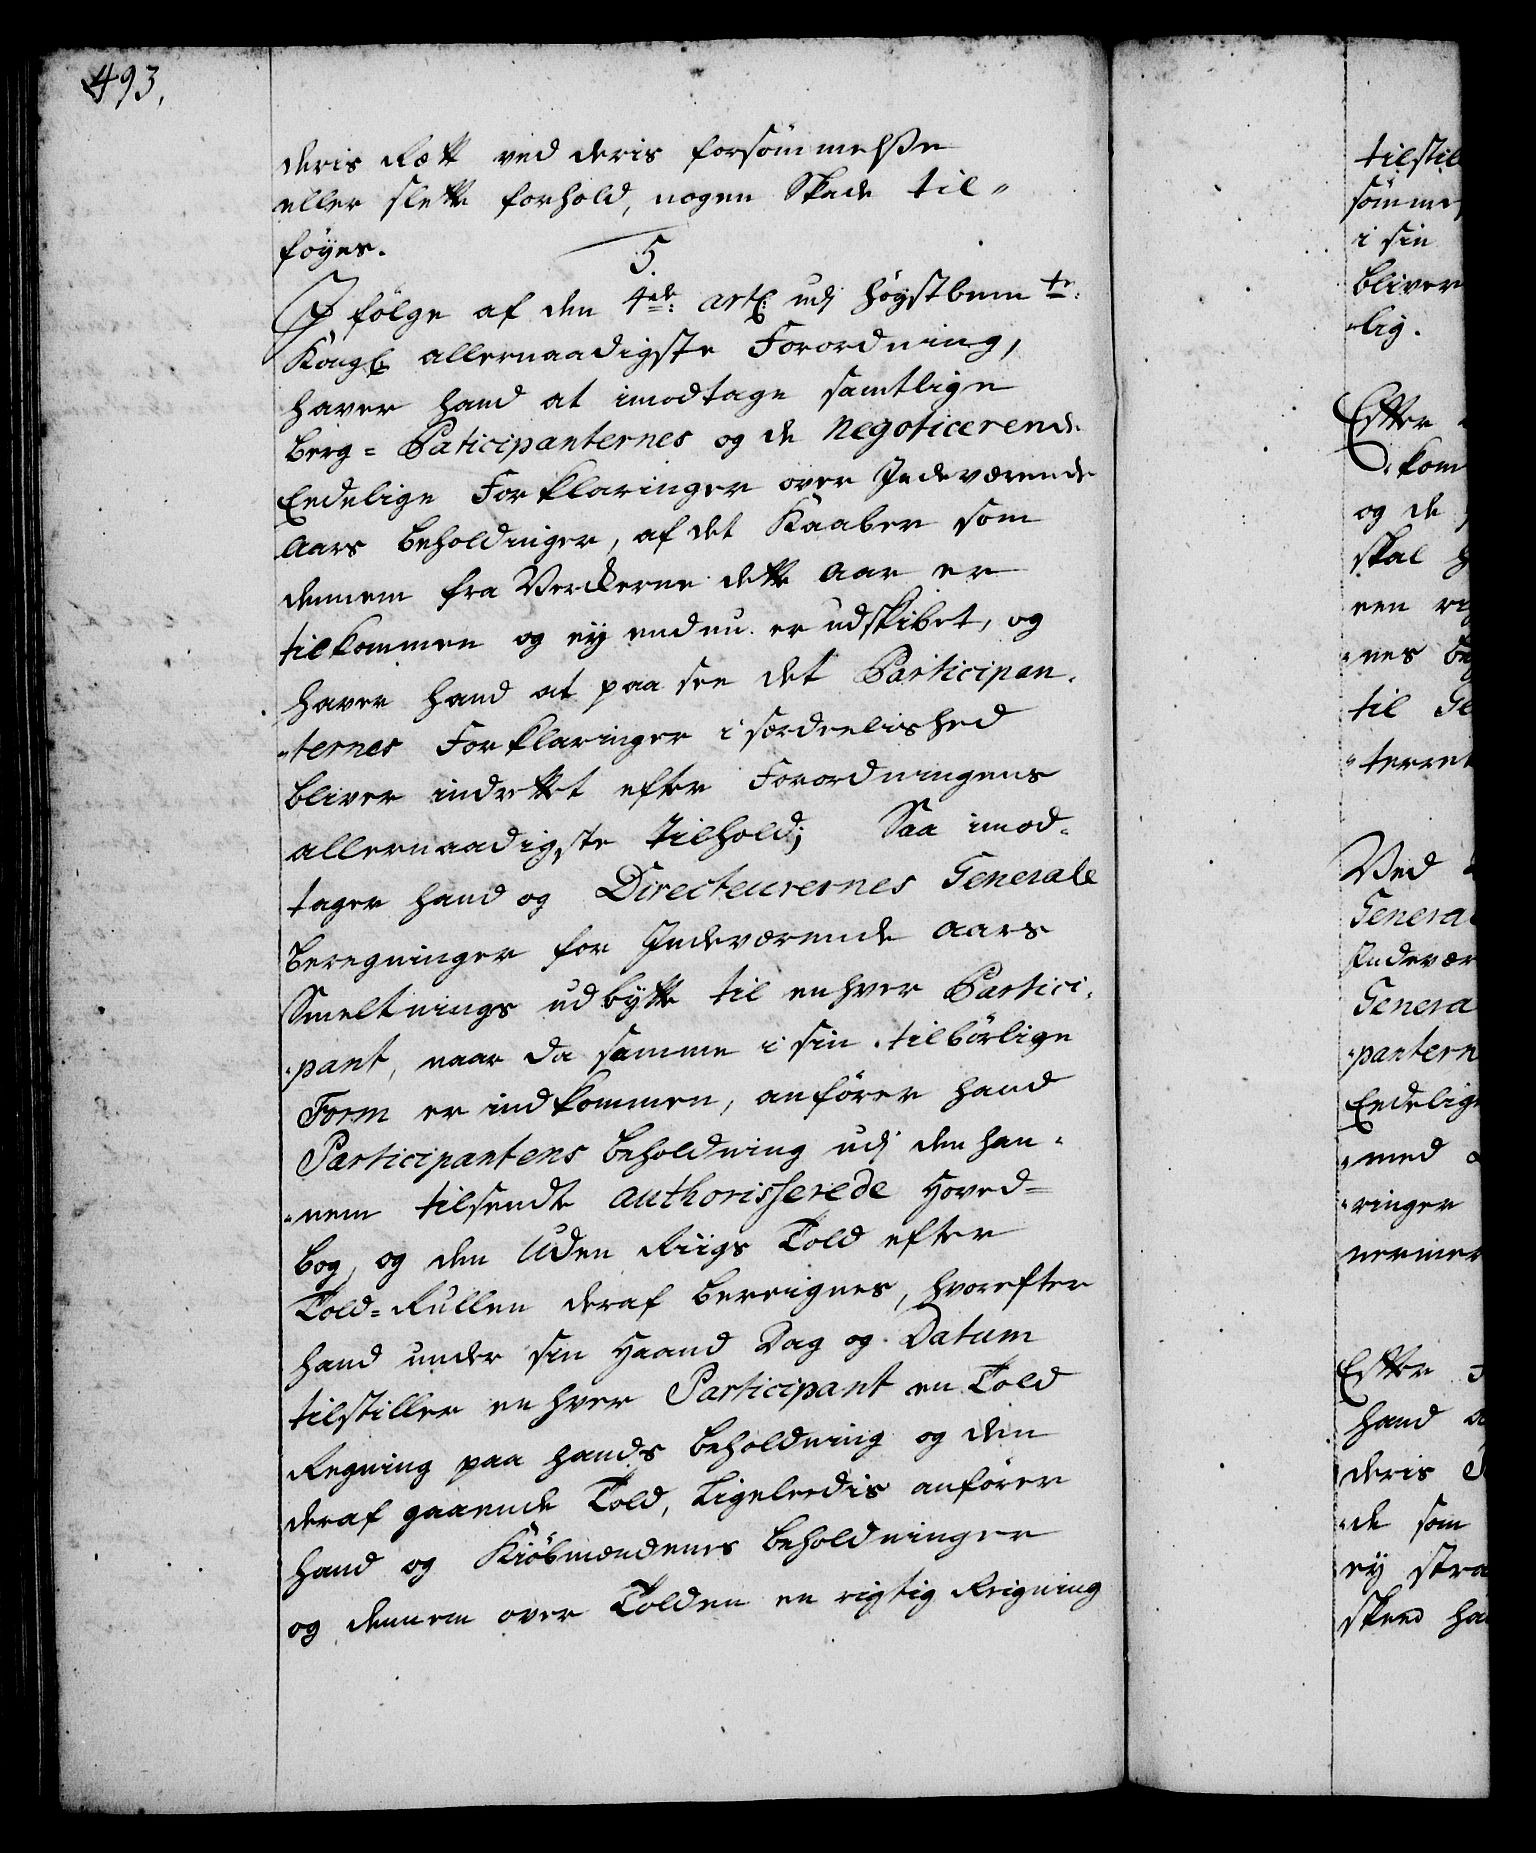 493.
deris Rætt ved deris forsömmelße
eller slette forhold, nogen Skade til-
föyes.
5.
I fölge af den 4de artl: udj höystbemte:
Kongl: allernaadigste Forordning,
haver hand at imodtage samtlige
Berg-Paticipanternes og de Negoticerende
Endelige Forklaringer over Indeværende
Aars beholdinger, af det Kaaber som
dennem fra Verckerne dette Aar er
tilkommen og ey endnu er udskibet, og
haver hand at paa see det Participan-
ternes Forklaringer i særdeelished
bliver indrettet efter Forordningens
allernaadigste tilhold; Saa imod-
tager hand og Directeurernes Generale
Beregninger for Indeværende Aars
Smeltnings udbytte til enhver Partici-
pant, naar da samme i sin tilbörlige
Form er indkommen, anförer hand
Participantens beholdning udj den han-
nem tilsendte authorisserede Hoved-
bog, og den Uden Riigs Told efter
Told-Rullen deraf bereignes, hvorefter
hand under sin Haand Dag og Datum
tilstiller en hver Participant en Told
Regning paa hands beholdning og den
deraf gaaende Told, Ligeleedis anförer
hand og Kiöbmændenes beholdninger
og dennem over Tolden en rigtig Reigning
tilstil
sömme
i sin
bliver
lig.
Efter
kom
og de
skal
een
nes
til Ge
terret
Ved
General
Indevær
Genera
pantern
Endelig
med
ringer
Efter
hand
deris
de som
ey stra
skeed ha